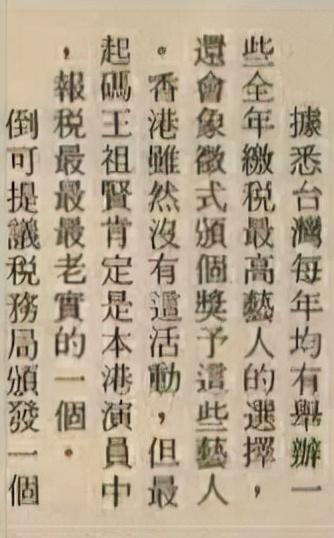 據悉台灣每年均有舉辦一
些全年繳稅最高藝人的選擇，
還會象徵式頒個獎予這些藝人
。香港雖然沒有這活動，但最
起碼王祖賢肯定是本港演員中
，報稅最最最老實的一個。
倒可提議稅務局頒發一個